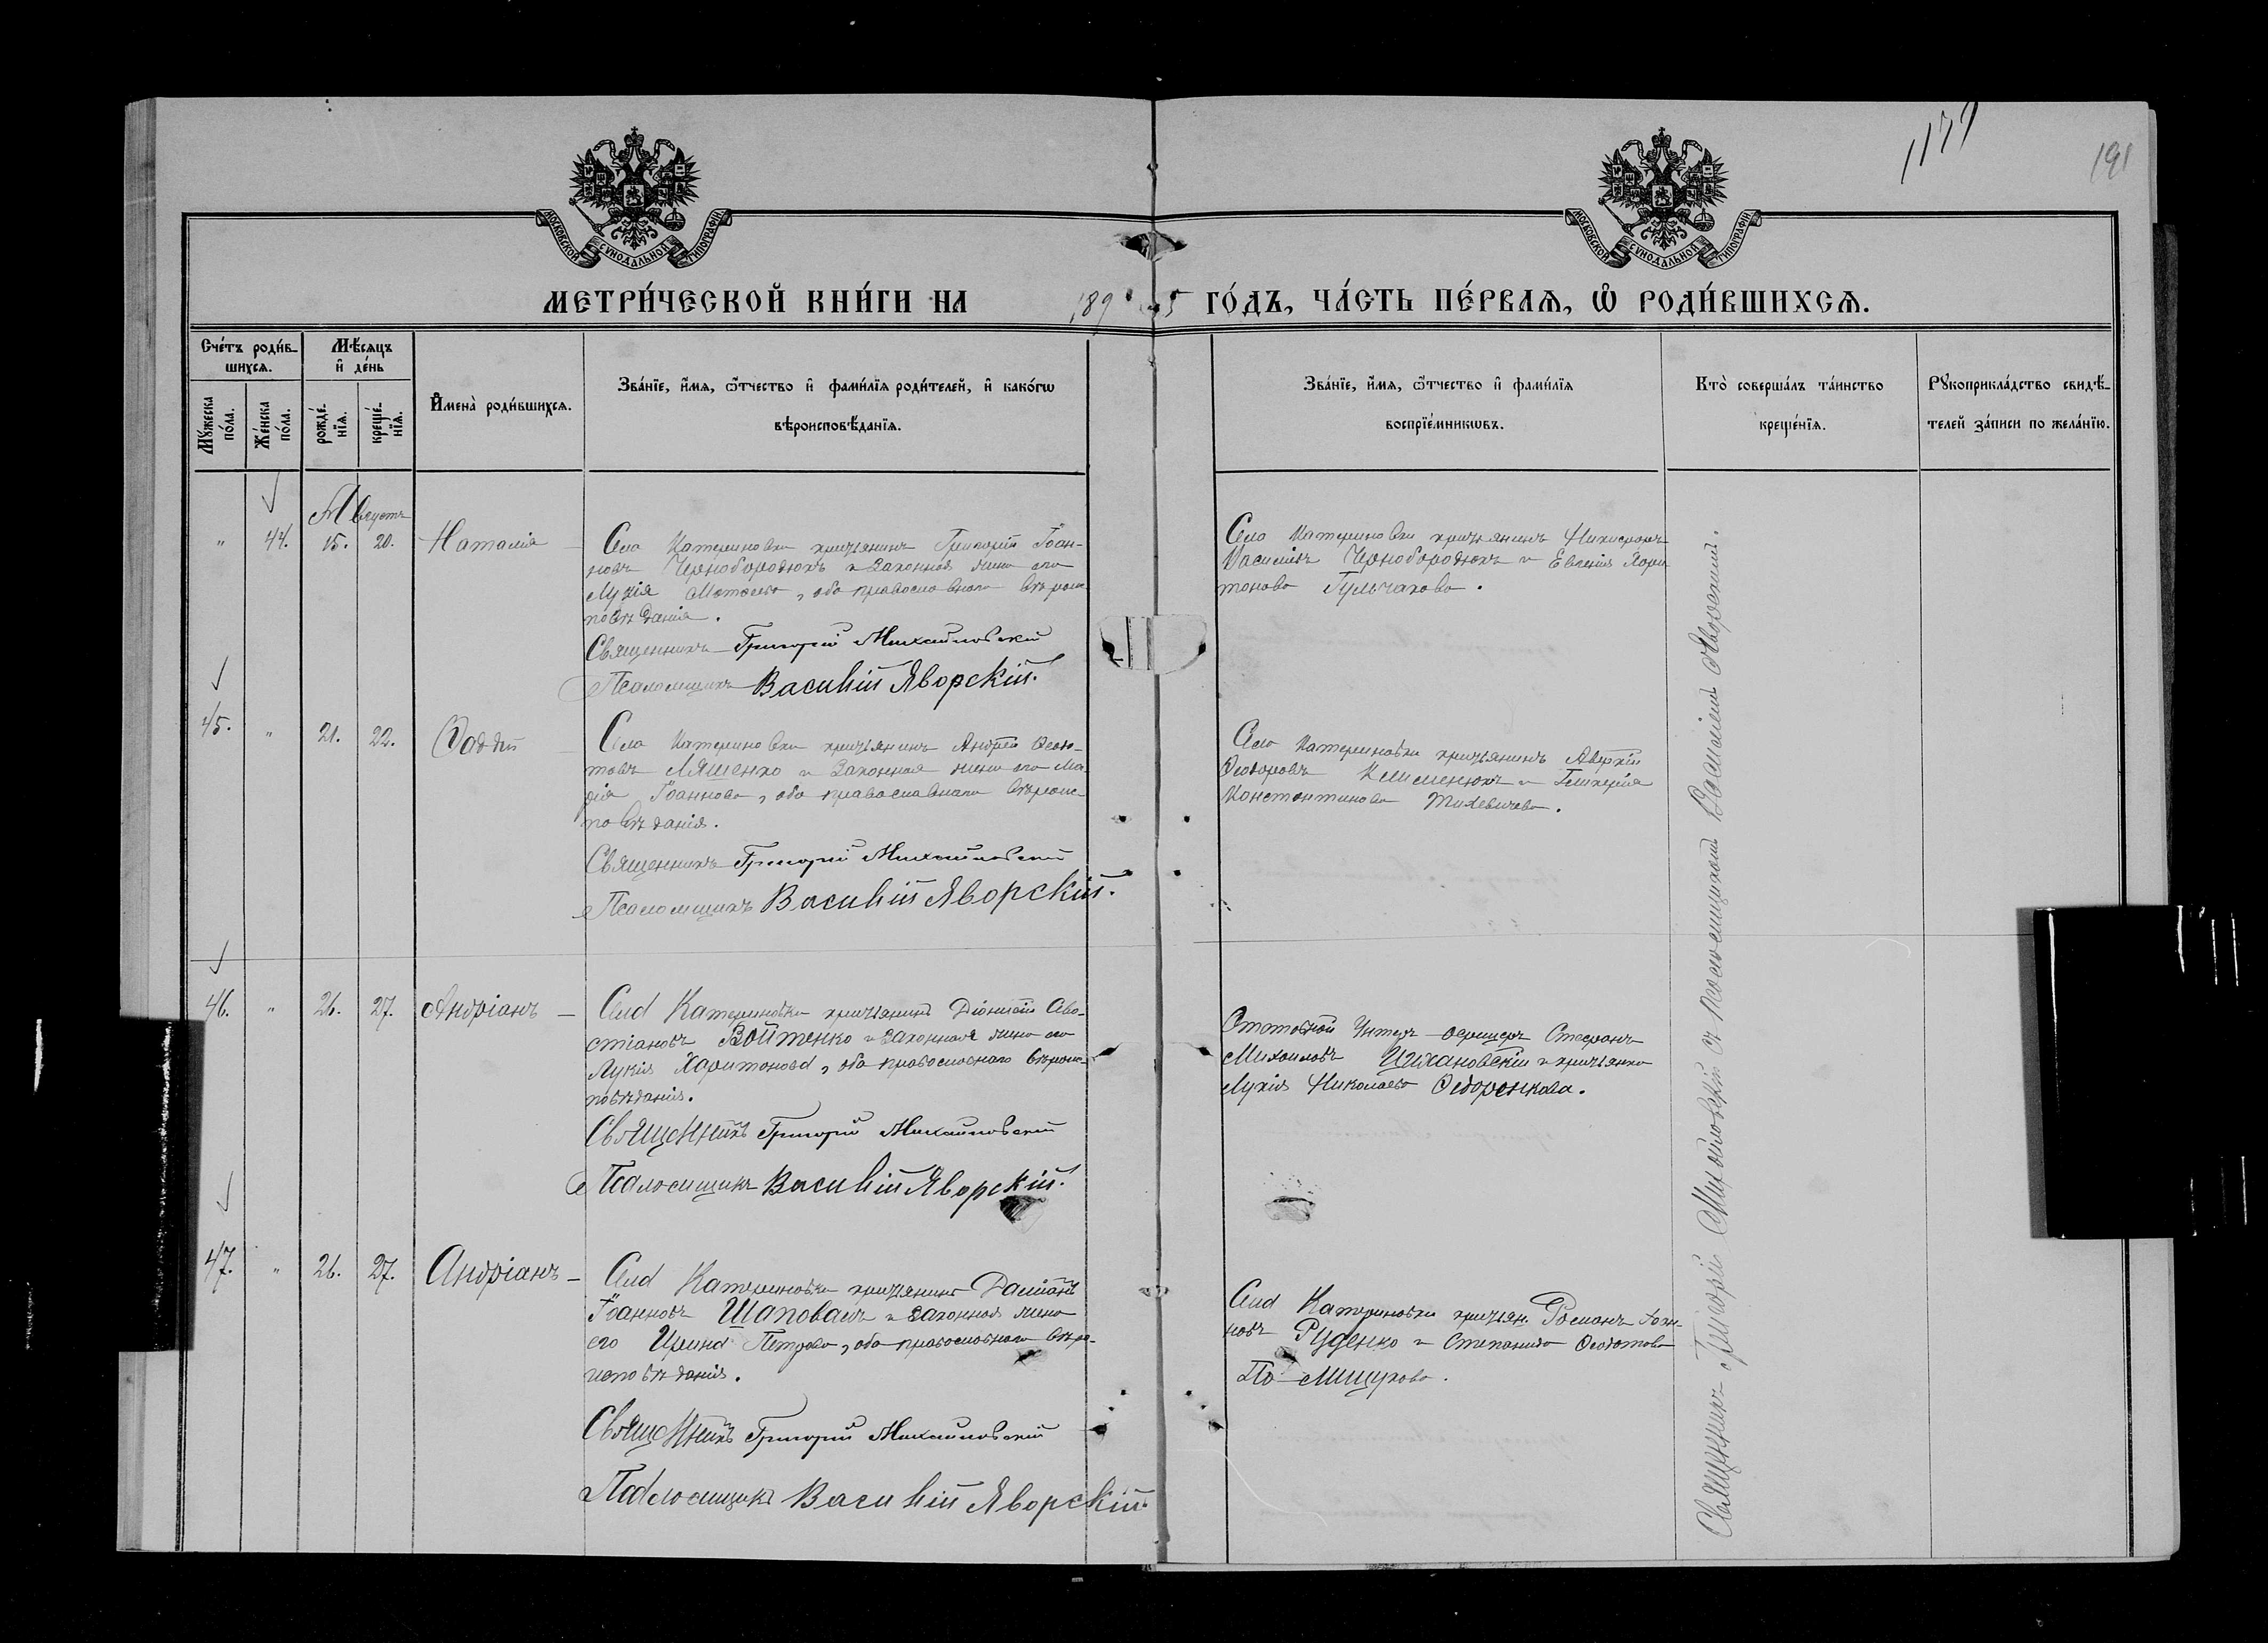 1177
191
МОСКОВСКОЙ СѴНОДАЛЬНОЙ ТИПОГРАФІИ
МОСКОВСКОЙ СѴНОДАЛЬНОЙ ТИПОГРАФІИ
МЕТРИ́ЧЕСКОЙ КНИ́ГИ НА 1895 ГО́ДЪ, ЧА́СТЬ ПЕ́РВАЯ, Ѡ РОДИ́ВШИХСЯ.
Сче́тъ роди́в-
шихся.
Мꙋ́жеска по́ла.
Же́нска по́ла.
Мѣ́сяцъ и де́нь
рожде́-
нїя.
креще́-
нїя.
Имена̀ роди́вшихся.
Зва́нїе, и́мя, ѻ́тчество и фами́лїя роди́телей, и како́гѡ
вѣроисповѣ́данїя.
Зва́нїе, и́мя, ѻ́тчество и фами́лїя
воспрїе́мникѡвъ.
Кто̀ соверша́лъ та́инство
креще́нїя.
Рꙋкоприкла́дство свидѣ́-
телей за́писи по жела́нїю.
Августъ
" 44. 15. 20. Наталія
Села Катериновки крестьянинъ Григорій Іоан-
новъ Чернобородюкъ и законная жена его
Лукія Матѳеева, оба православнаго вѣроис-
повѣданія.
Священникъ Григорій Михайловскій
Псаломщикъ Василій Яворскій.
Села Катериновки крестьянинъ Никифоръ
Василіевъ Чернобородюкъ и Евгенія Хари
тонова Гульчакова.
45. " 21. 22. Ѳаддей
Села Катериновки крестьянинъ Андрей Ѳеок-
товъ Ляшенко и законная жена его Ма-
рія Іоаннова, оба православнаго вѣроис-
повѣданія.
Священникъ Григорій Михайловскій
Псаломщикъ Василій Яворскій.
Села Катериновки крестьянинъ Аверкій
Ѳеодоровъ Клименюкъ и Гликерія
Константинова
46. " 26. 27. Андріанъ
Села Катериновки крестьянинъ Діонисій Сева-
стіановъ Войтенко и законная жена его
Лукія Харитонова, оба православнаго вѣроис-
повѣданія.
Священникъ Григорій Михайловскій
Псаломщикъ Василій Яворскій.
Отставной Унтеръ-офицеръ Стефанъ
Михаиловъ Цихановскій и крестьянка
Лукія Николаева Ѳедоренкова.
47. " 26. 27. Андріанъ
Села Катериновки крестьянинъ Даміанъ
Іоанновъ Шаповалъ и законная жена
его Ирина Петрова, оба православнаго вѣро-
исповѣданія.
Священникъ Григорій Михайловскій
Псаломщикъ Василій Яворскій.
Села Катериновки крестьян Романъ Іоан-
новъ Руденко и Степанида Ѳеодотова
Священникъ Григорій Михайловскій съ псаломщикомъ Василіемъ Яворскимъ.